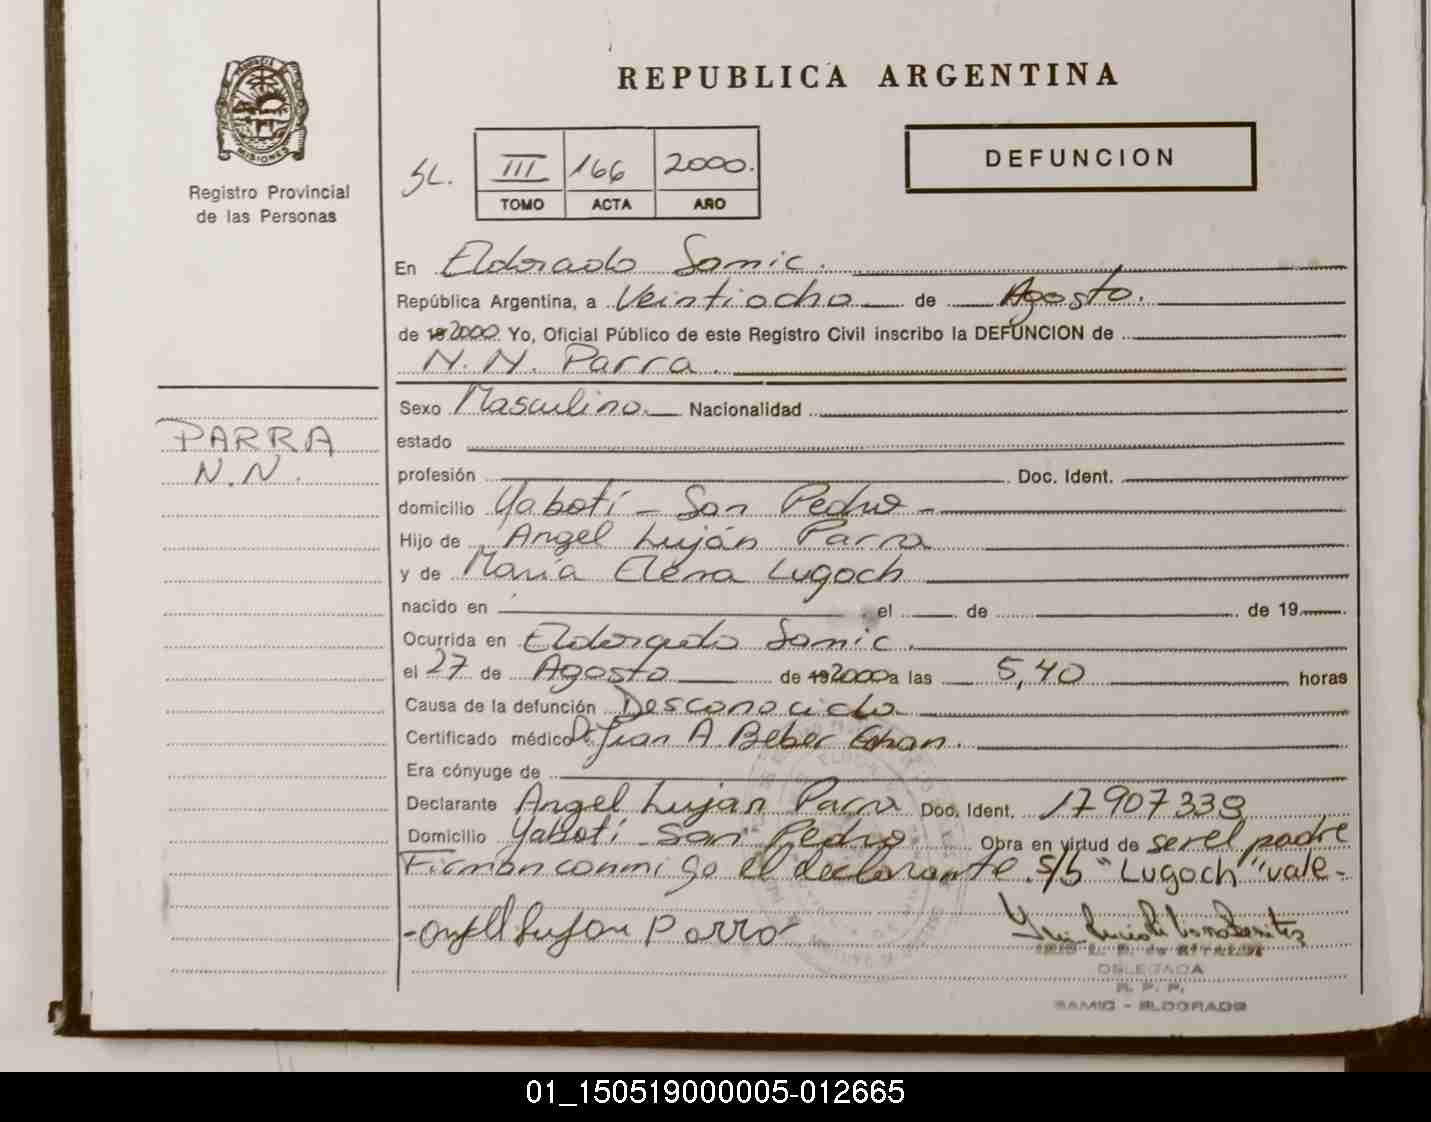 REPUBLICA ARGENTINA
PROVINCIA DE
MISIONES
Registro Provincial
de las Personas
SL.
III 166 2000.
TOMO ACTA AÑO
DEFUNCION
En Eldorado Samic.
República Argentina, a Veintiocho de Agosto.
de 19 2000 Yo, Oficial Público de este Registro Civil inscribo la DEFUNCION de
N. N. Parra.
PARRA
N. N.
Sexo Masculino. Nacionalidad
estado
profesión Doc. Ident.
domicilio Yabotí - San Pedro -
Hijo de Angel Luján Parra
y de María Elena Lugoch
nacido en el de de 19
Ocurrida en Eldorado Samic.
el 27 de Agosto de 19 2000 a las 5,40 horas
Causa de la defunción Desconocido
Certificado médico Dr Juan A Beber
Era cónyuge de
Declarante Angel Luján Parra Doc. Ident. 17907338
Domicilio Yabotí - San Pedro Obra en virtud de ser el padre
Firman conmigo el declarante. s/b "Lugoch" vale-
Angel Lujan Parra
DELEGADA
R. P. P.
SAMIC - ELDORADO
01_150519000005-012665